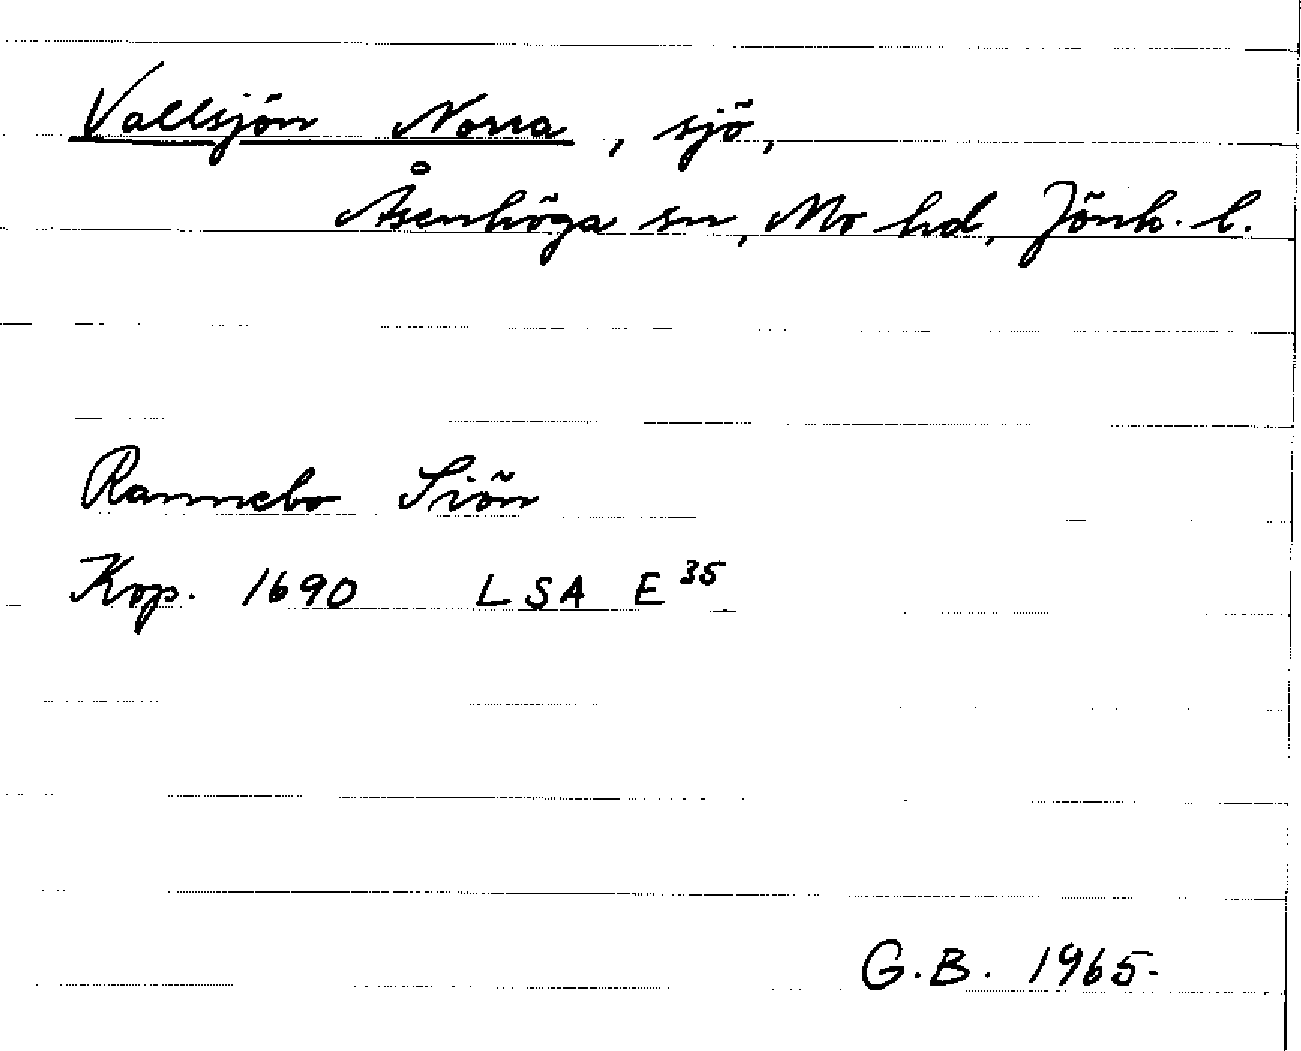 Vallsjön Norra, sjö,
Åsenhöga sn, Mo hd, Jönk. l.
Rannebo Siön
Kop. 1690 LSA E 35
G.B. 1965.